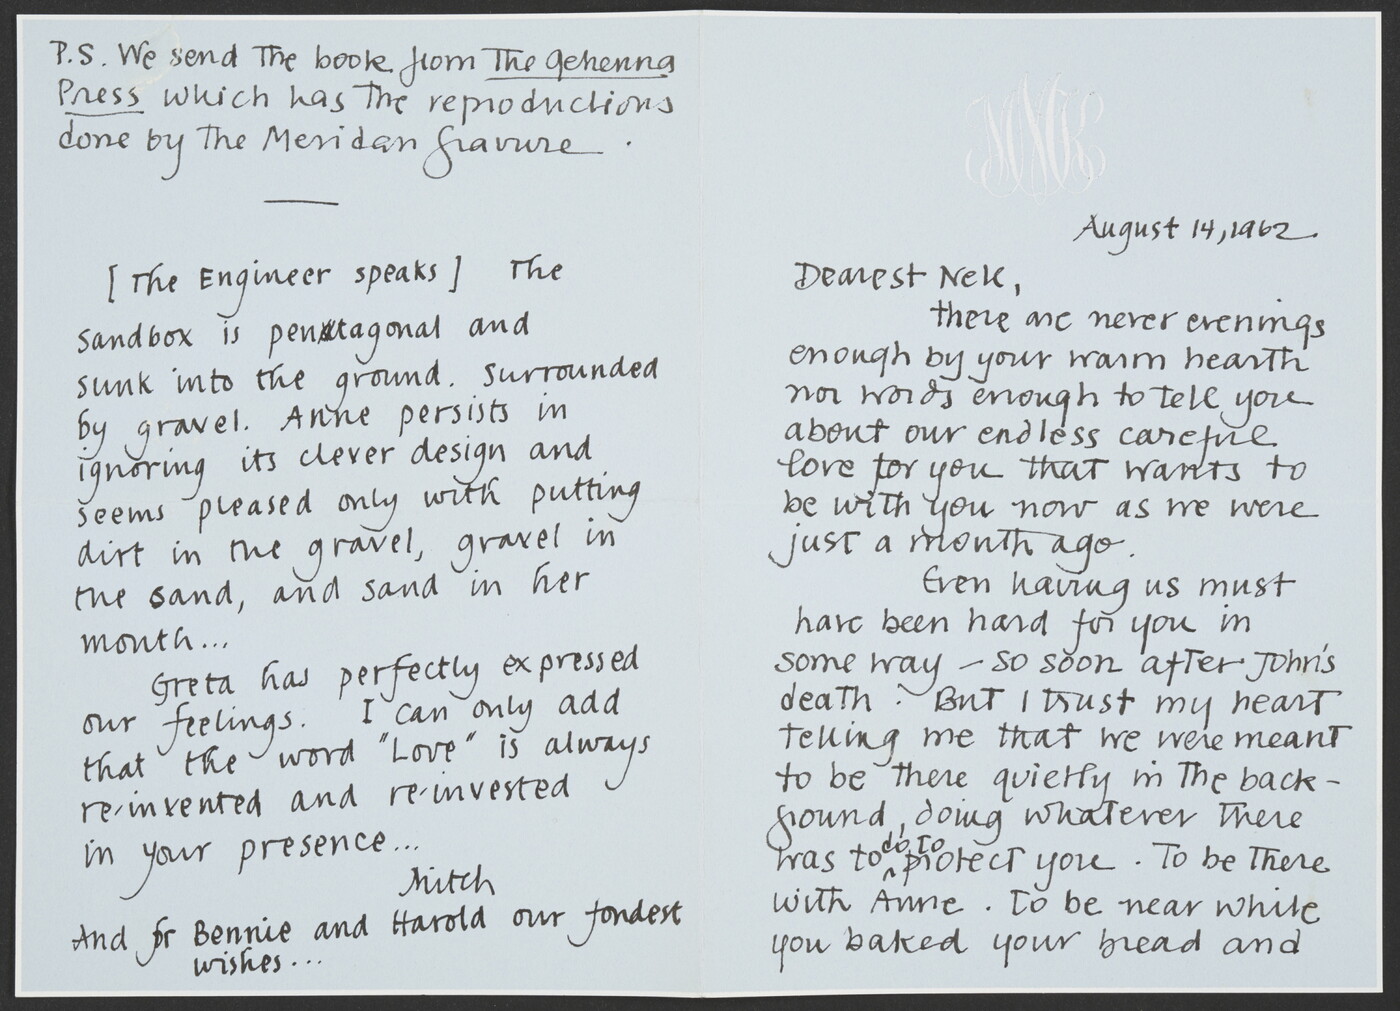 P.S. We send The book from The Gehenna
Press which has The reproductions
done by The Meridan Gravure .
[ The Engineer speaks ] The
sandbox is pentagonal and
sunk into the ground. Surrounded
by gravel. Anne persists in
ignoring its clever design and
seems pleased only with putting
dirt in the gravel, gravel in
the sand, and sand in her
mouth...
Greta has perfectly expressed
our feelings. I can only add
that the word "Love" is always
re-invented and re-invested
in your presence...
Mitch
And for Bennie and Harold our fondest
wishes...
MNK
August 14, 1962.
Dearest Nell,
There are never evenings
enough by your warm hearth
nor words enough to tell you
about our endless careful
love for you that wants to
be with you now as we were
just a month ago.
Even having us must
have been hard for you in
some way – so soon after John's
death. But I trust my heart
telling me that we were meant
to be there quietly in The back-
ground, doing whatever There
was to do to protect you. To be There
with Anne. To be near while
you baked your bread and